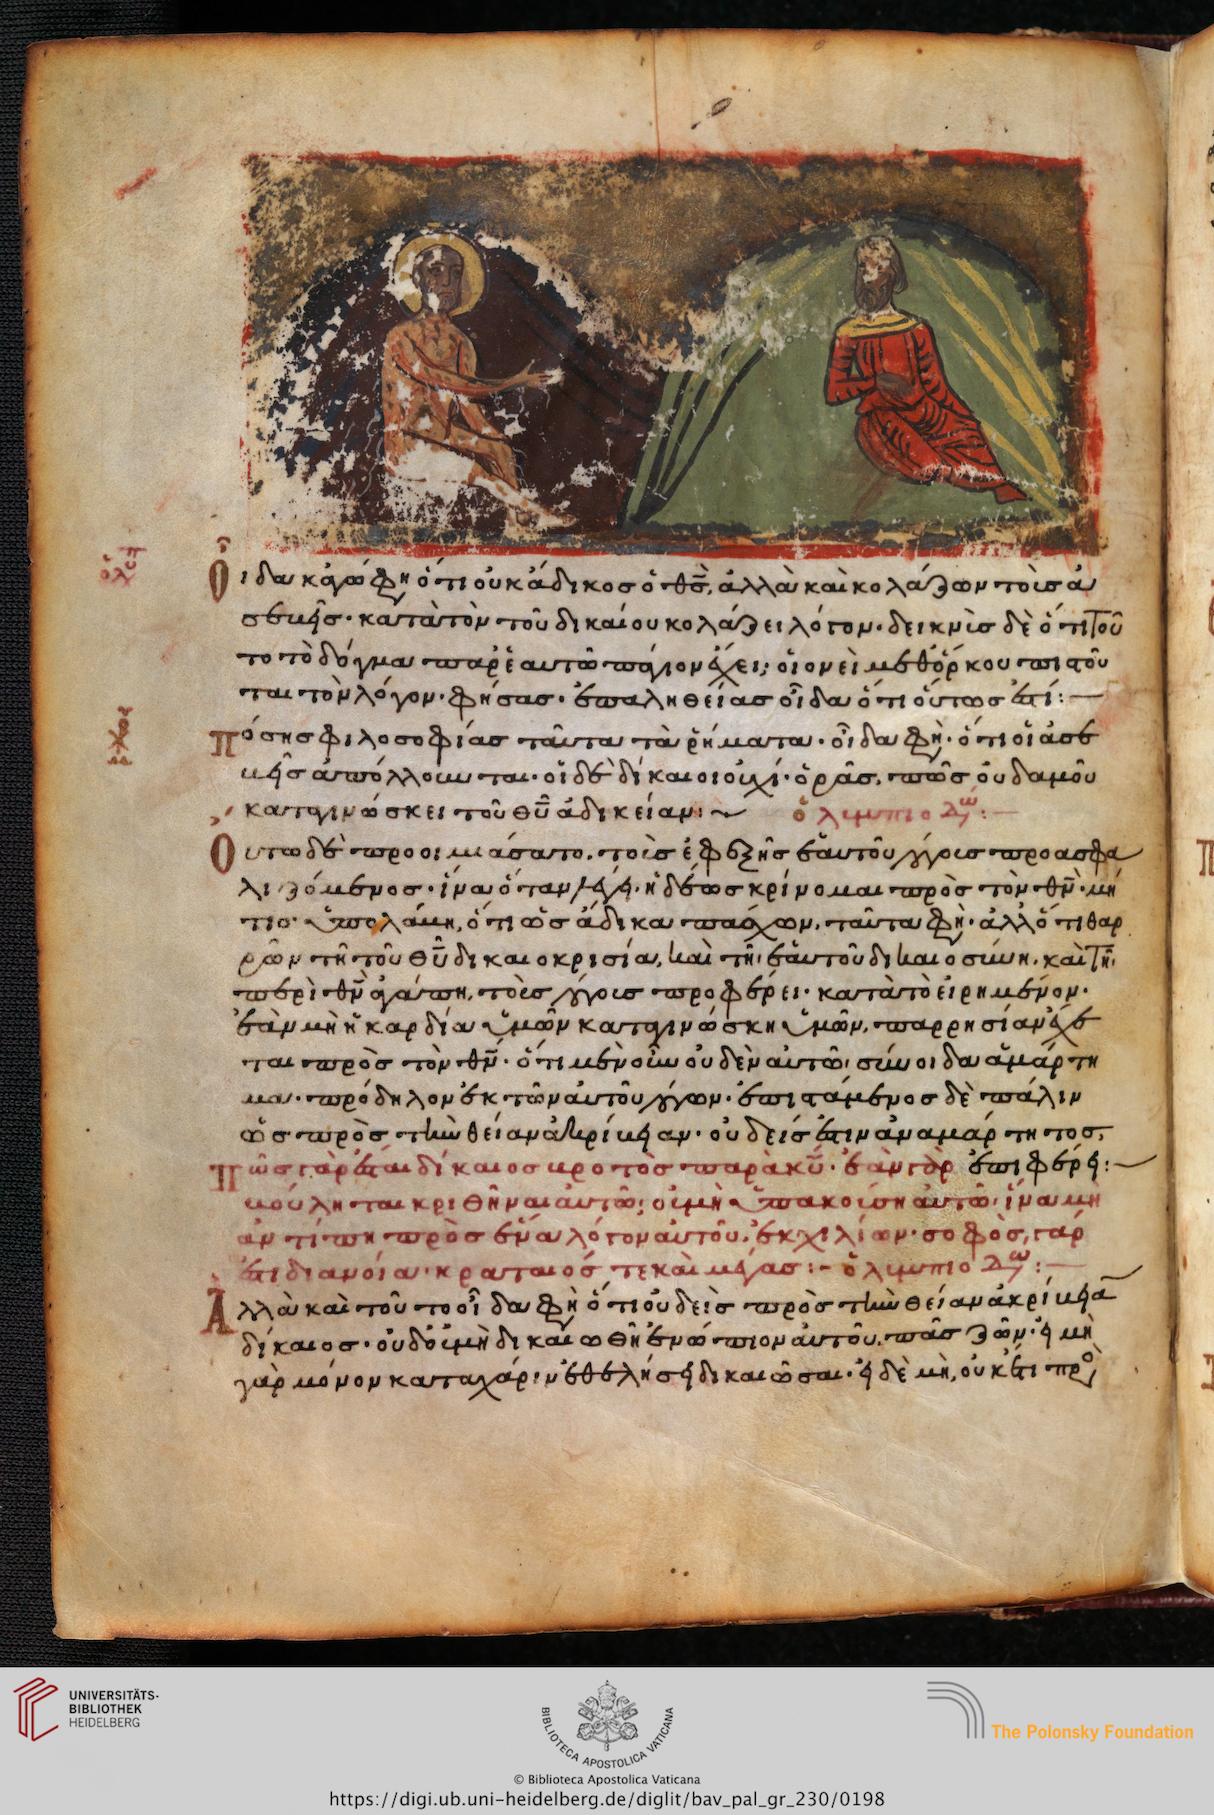 Οἶδα κἀγώ φη ὅτι οὐκ ἄδικος ὁ θσ, ἀλλὰ καὶ κολάζων τοὺς ἀ
σεβεῖς· κατὰ τὸν τοῦ δικαίου κολάζει λόγον· δεικνὺς δὲ ὅτι τοῦ
το τὸ δόγμα παρ' ἑαυτῶ πάγιον ἔχει; οἱονεὶ μεθ' ὅρκου πιστοῦ
ται τὸν λόγον· φήσας· ἐπ' ἀληθείας οἶδα ὅτι οὕτως ἐστί:
Πόσης φιλοσοφίας ταῦτα τὰ ῥήματα· οἶδα φη· ὅτι οἱ ἀσε
βεῖς ἀπόλλουνται· οἱ δὲ δίκαιοι οὐχί· ὁρᾶς, πῶς οὐδαμοῦ
καταγινώσκει τοῦ θυ ἀδικείαν: ὀλυμπιοδω:
Οὕτω δὲ προοιμιάσατο, τοῖς ἐφεξῆς ἑαυτοῦ λόγοις προασφα
λιζόμενος· ἵνα ὅταν λέγει· ἡδέως κρίνομαι πρὸς τὸν θν· μή
τις ὑπολάβη, ὅτι ὡς ἄδικα πάσχων, ταῦτα φη· ἀλλ' ὅτι θαρ
ρῶν τῆ τοῦ θυ δικαιοκρισία, καὶ τῆ ἑαυτοῦ δικαιοσύνη, καὶ τῆ
περὶ θν ἀγάπη, τοὺς λόγους προφέρει· κατὰ τὸ εἰρημένον·
ἐὰν μὴ ἡ καρδία ὑμῶν καταγινώσκη ὑμῶν, παρρησίαν ἔχε
ται πρὸς τὸν θν· ὅτι μὲν οὖν οὐδὲν αὐτῶ σύνοιδα ἁμάρτη
μα· πρόδηλον ἐκ τῶν αὐτοῦ λόγων· ἐπιστάμενος δὲ πάλιν
ὡς πρὸς τὴν θείαν ἀκρίβειαν· οὐδείς ἐστιν ἀναμάρτητος,
Πῶς γὰρ ἔσται δίκαιος βροτὸς παρὰ κυ· ἐὰν γὰρ ἐπιφέρει:
βούληται κριθῆναι αὐτῶ; οὐ μὴ ὑπακούση αὐτῶ· ἵνα μὴ
ἀντίπη πρὸς ἕνα λόγον αὐτοῦ, ἐκ χιλίων· σοφὸς γάρ
ἐστι διανοία· κραταιός τε καὶ μέγας: ὀλυμπιοδω:
Ἀλλὰ καὶ τοῦτο οἶδα φη ὅτι οὐδεὶς πρὸς τὴν θείαν ἀκρίβειαν
δίκαιος· οὐδ' οὐ μὴ δικαιωθῆ ἐνώπιον αὐτοῦ, πᾶς ζῶν· εἰ μὴ
γὰρ μόνον κατὰ χάριν ἐθελήσει δικαιῶσαι· εἰ δὲ μὴ, οὐκ ἔστι προ
UNIVERSITÄTS-
BIBLIOTHEK
HEIDELBERG
BIBLIOTECA APOSTOLICA VATICANA
The Polonsky Foundation
© Biblioteca Apostolica Vaticana
https://digi.ub.uni-heidelberg.de/diglit/bav_pal_gr_230/0198